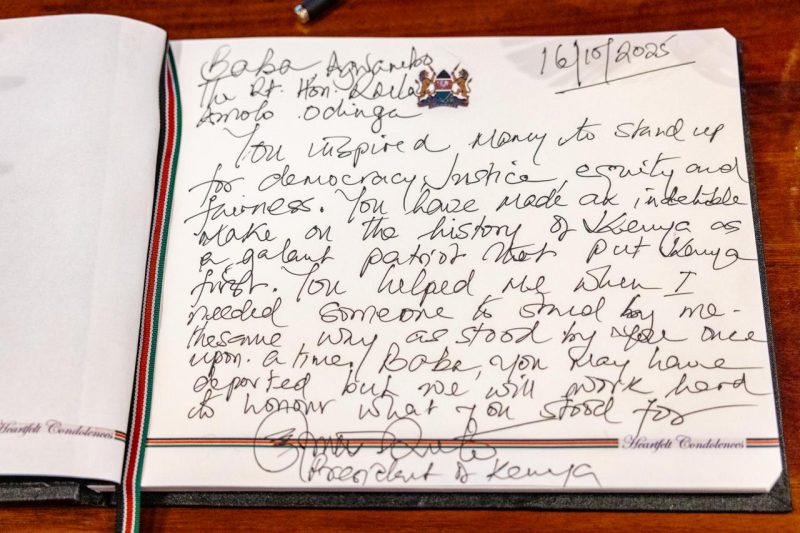 Baba, Agwambo
The Rt. Hon. Raila
Amolo Odinga
16/10/2025
You inspired many to stand up
for democracy, Justice, equity and
fairness. You have made an indelible
make on the history of Kenya as
a galant patriot that put Kenya
first. You helped me when I
needed someone to stand by me -
the same way as stood by you once
upon a time. Baba, you may have
departed but we will work hard
to honour what you stood for
President of Kenya
Heartfelt Condolences
Heartfelt Condolences